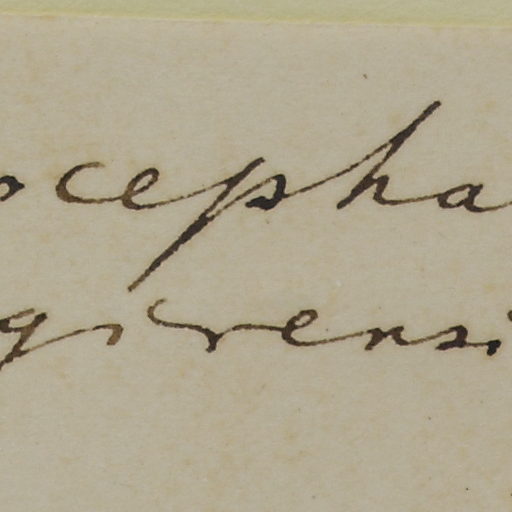 ocepha
girensi